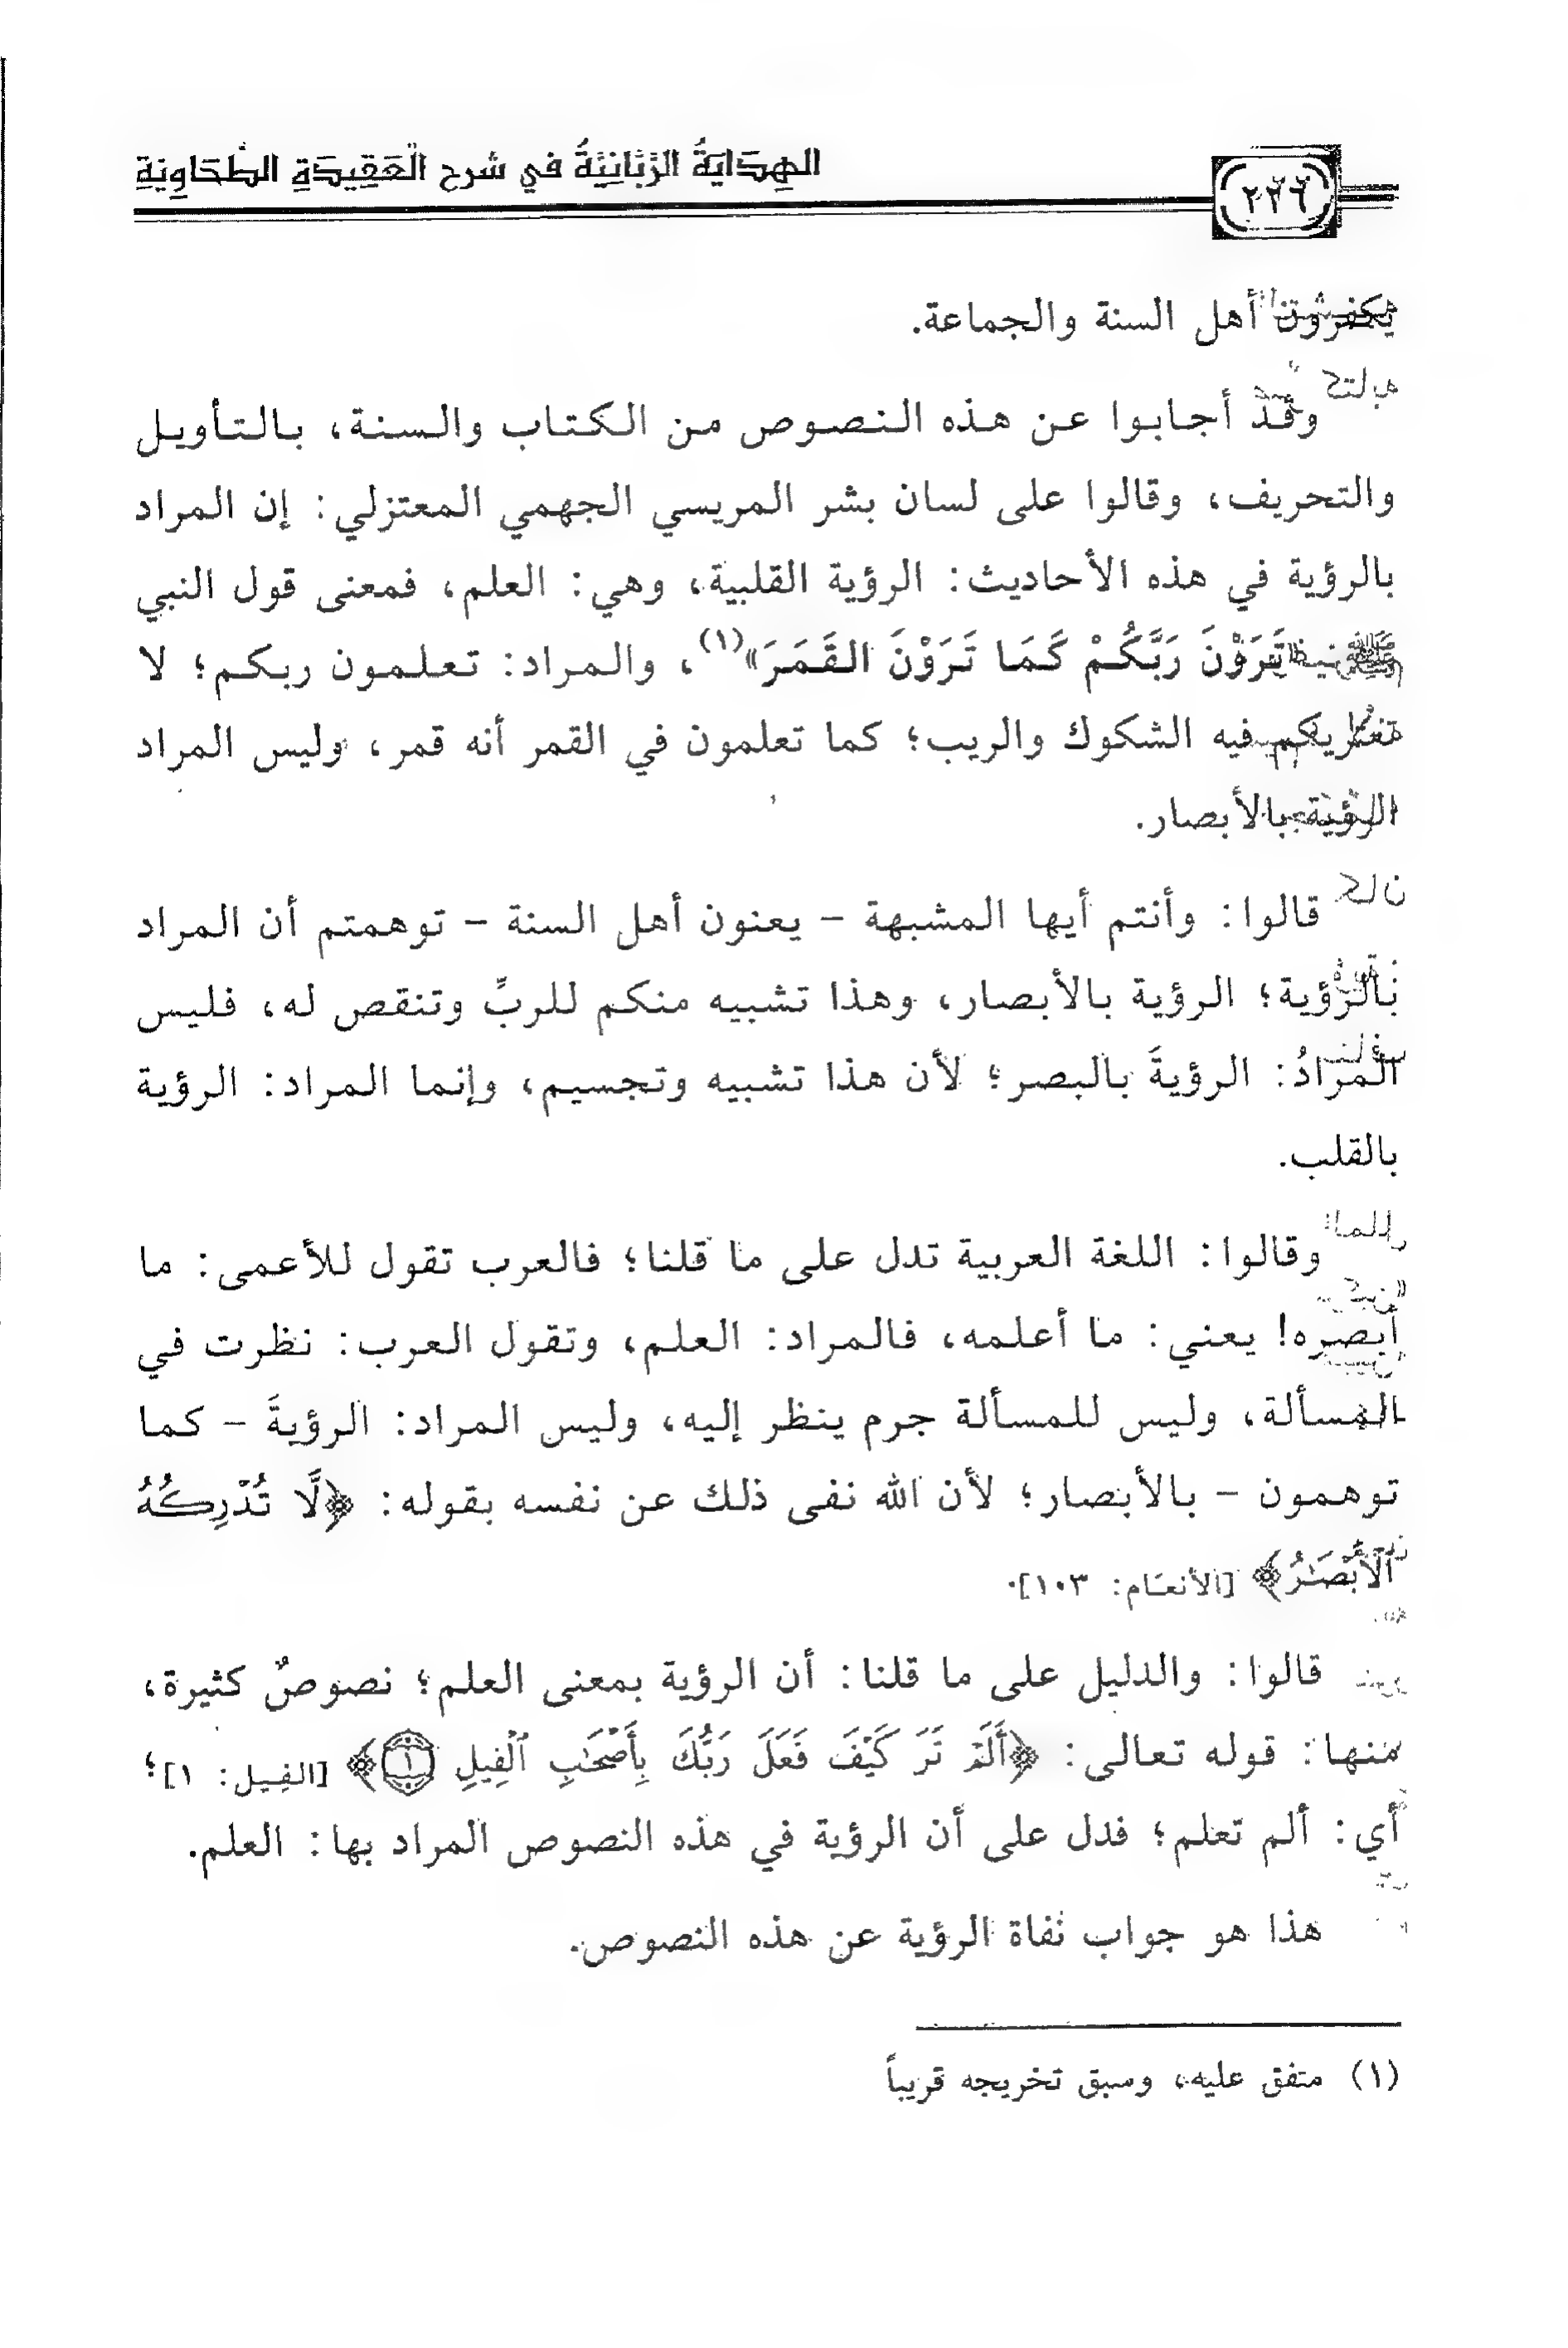 الهِدَايَةُ الرَّبَّانِيَّةُ في شرح الْعَقِيدَةِ الطَّحَاوِيَّةِ
٢٢٦
يكفرون أهل السنة والجماعة.
وقد أجابوا عن هذه النصوص من الكتاب والسنة، بالتأويل
والتحريف، وقالوا على لسان بشر المريسي الجهمي المعتزلي: إن المراد
بالرؤية في هذه الأحاديث: الرؤية القلبية، وهي: العلم، فمعنى قول النبي
ﷺ: «تَرَوْنَ رَبَّكُمْ كَمَا تَرَوْنَ القَمَرَ»(١)، والمراد: تعلمون ربكم؛ لا
تعتريكم فيه الشكوك والريب؛ كما تعلمون في القمر أنه قمر، وليس المراد
الرؤية بالأبصار.
قالوا: وأنتم أيها المشبهة - يعنون أهل السنة - توهمتم أن المراد
بالرؤية؛ الرؤية بالأبصار، وهذا تشبيه منكم للربِّ وتنقص له، فليس
المرادُ: الرؤيةَ بالبصر؛ لأن هذا تشبيه وتجسيم، وإنما المراد: الرؤية
بالقلب.
وقالوا: اللغة العربية تدل على ما قلنا؛ فالعرب تقول للأعمى: ما
أبصره! يعني: ما أعلمه، فالمراد: العلم، وتقول العرب: نظرت في
المسألة، وليس للمسألة جرم ينظر إليه، وليس المراد: الرؤيةَ - كما
توهمون - بالأبصار؛ لأن الله نفى ذلك عن نفسه بقوله: ﴿لَّا تُدْرِكُهُ
ٱلْأَبْصَٰرُ﴾ [الأنعَام: ١٠٣].
قالوا: والدليل على ما قلنا: أن الرؤية بمعنى العلم؛ نصوصٌ كثيرة،
منها: قوله تعالى: ﴿أَلَمْ تَرَ كَيْفَ فَعَلَ رَبُّكَ بِأَصْحَٰبِ ٱلْفِيلِ ١﴾ [الفِيل: ١]؛
أي: ألم تعلم؛ فدل على أن الرؤية في هذه النصوص المراد بها: العلم.
هذا هو جواب نُفاة الرؤية عن هذه النصوص.
(١) متفق عليه، وسبق تخريجه قريباً